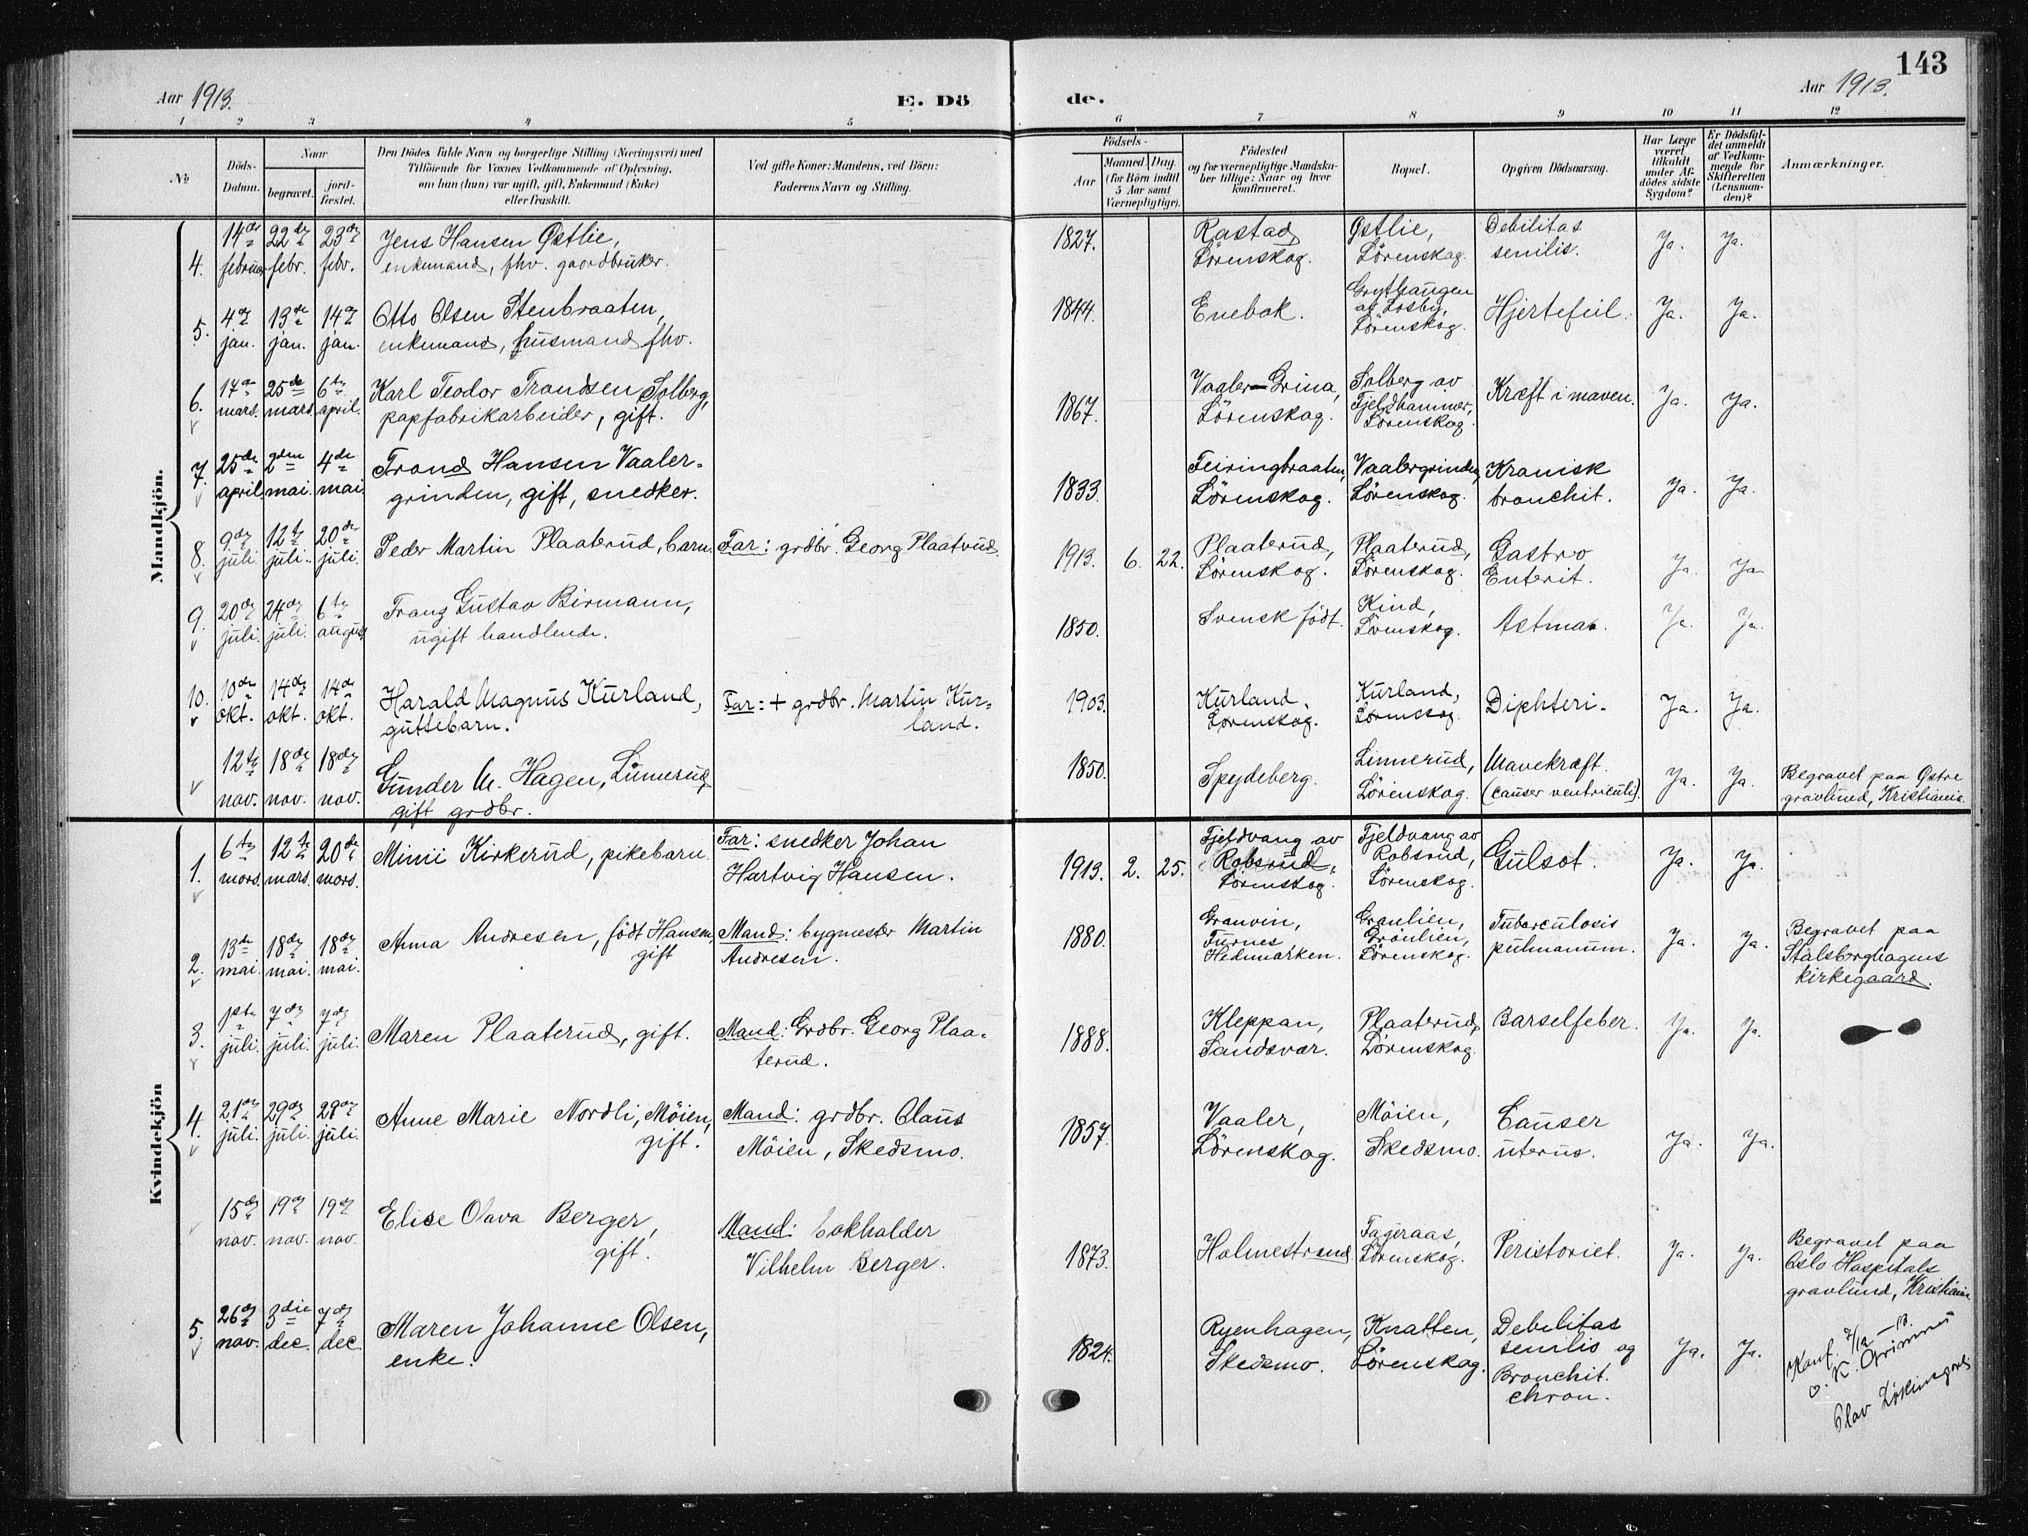 143
Aar 1913.
E. Dö
de.
Aar 1913.
1 2 3 4 5 6 7 8 9 10 11 12
No
Döds-
Datum.
Naar
begravet.
jord-
fæstet.
Den Dödes fulde Navn og borgerlige Stilling (Næringsvei) med
Tilföiende for Voxnes Vedkommende af Oplysning,
om han (hun) var ugift, gift, Enkemand (Enke)
eller fraskilt.
Ved gifte Koner: Mandens, ved Börn:
Faderens Navn og Stilling.
Födsels-
Aar
Maaned
Dag.
(for Börn indtil
5 Aar samt
Værnepligtige).
Födested
og for værnepligtige Mandska-
ber tillige: Naar og hvor
konfirmeret.
Bopæl.
Opgiven Dödsaarsag.
Har Læge
været
tilkaldt
under Af-
dödes sidste
Sygdom?
Er Dödsfal-
det anmeldt
af Vedkom-
mende for
Skifteretten
(Lensman-
den)?
Anmærkninger.
Mandkjön.
4. 14de februar 22de febr. 23de febr. Jens Hansen Østlie, 1827. Rastad Østlie, Debilitas Ja. Ja.
enkemand, fhv. gaardbruker. Lörenskog. Lörenskog. senilis.
5. 4de jan. 13de jan. 14de jan. Otto Olsen Stenbraaten, 1844. Enebak. Grythaugen Hjertefeil. Ja. Ja.
enkemand, husmand fhv. af Losby,
Lörenskog.
6. 17de mars. 25de mars. 6te april. Karl Teodor Trondsen Solberg, 1867. Vaaler-Grina, Solberg av Kræft i maven. Ja. Ja.
papfabrikarbeider, gift. Lörenskog. Fjeldhammer,
Lörenskog.
7. 25de april. 2den mai. 4de mai. Trond Hansen Vaaler- 1833. Feiringbraaten, Vaalergrinden, Kronisk Ja. Ja.
grinden, gift, snedker. Lörenskog. Lörenskog. bronchit.
8. 9de juli. 12te juli. 20de juli. Peder Martin Plaaterud, barn. Far: grdbr. Georg Plaatrud. 1913. 6. 22. Plaaterud, Plaaterud, Gastro Ja. Ja.
Lörenskog. Lörenskog. Enterit.
9. 20de juli. 24de juli. 6te august Franz Gustav Birmann, 1850. Svensk födt. Kind, Astma. Ja. Ja.
ugift handlende. Lörenskog.
10. 10de okt. 14de okt. 14de okt. Harald Magnus Kurland, Far: + grdbr. Martin Kur- 1903. Kurland, Kurland, Diphteri. Ja. Ja.
guttebarn. land. Lørenskog. Lørenskog.
12te nov. 18de nov. 18de nov. Gunder M. Hagen, Linnerud, 1850. Spydeberg. Linnerud, Mavekræft. Ja. Ja. Begravet paa Østre
gift grdbr. Lörenskog. (cancer ventriculi). gravlund, Kristiania.
Kvindekjön
1. 6te mars. 12te mars. 20de mars. Mimi Kirkerud, pikebarn. Far: snedker Johan 1913. 2. 25. Fjeldvang av Fjeldvang av Gulsot. Ja. Ja.
Hartvig Hansen. Robsrud, Robsrud,
Lörenskog. Lörenskog.
2. 13de mai. 18de mai. 18de mai. Anna Andresen, födt Hansen, Mand: bygmester Martin 1880. Granvin, Granlien, Tuberculosis Ja. Ja. Begravet paa
gift Andresen. Furnes, Grönlien, pulmonum. Stalsberghagens
Hedemarken. Lörenskog. kirkegaard.
3. 1ste juli. 7de juli. 7de juli. Maren Plaaterud, gift. Mand: Grdbr. Georg Plaa- 1888. Kleppan, Plaaterud, Barselfeber. Ja. Ja.
terud. Sandsvær. Lörenskog.
4. 21de juli. 29de juli. 29de juli. Anne Marie Nordli, Möien, Mand: grdbr. Claus 1857. Vaaler, Möien, Cancer Ja. Ja.
gift. Möien, Skedsmo. Lörenskog. Skedsmo. uterus.
15de nov. 19de nov. 19de nov. Elise Olava Berger, Mand: bokholder 1873. Holmestrand Fageraas, Peristoriet. Ja. Ja. Begravet paa
gift. Vilhelm Berger. Lörenskog. Oslo Hospitals
gravlund, Kristiania
5. 26de nov. 3die dec. 7de dec. Maren Johanne Olsen, 1824. Ryenhagen, Knatten, Debilitas Ja. Ja. Konf. 7/12-13.
enke. Skedsmo. Lörenskog. senilis og
Bronchit.
chron.
Olav